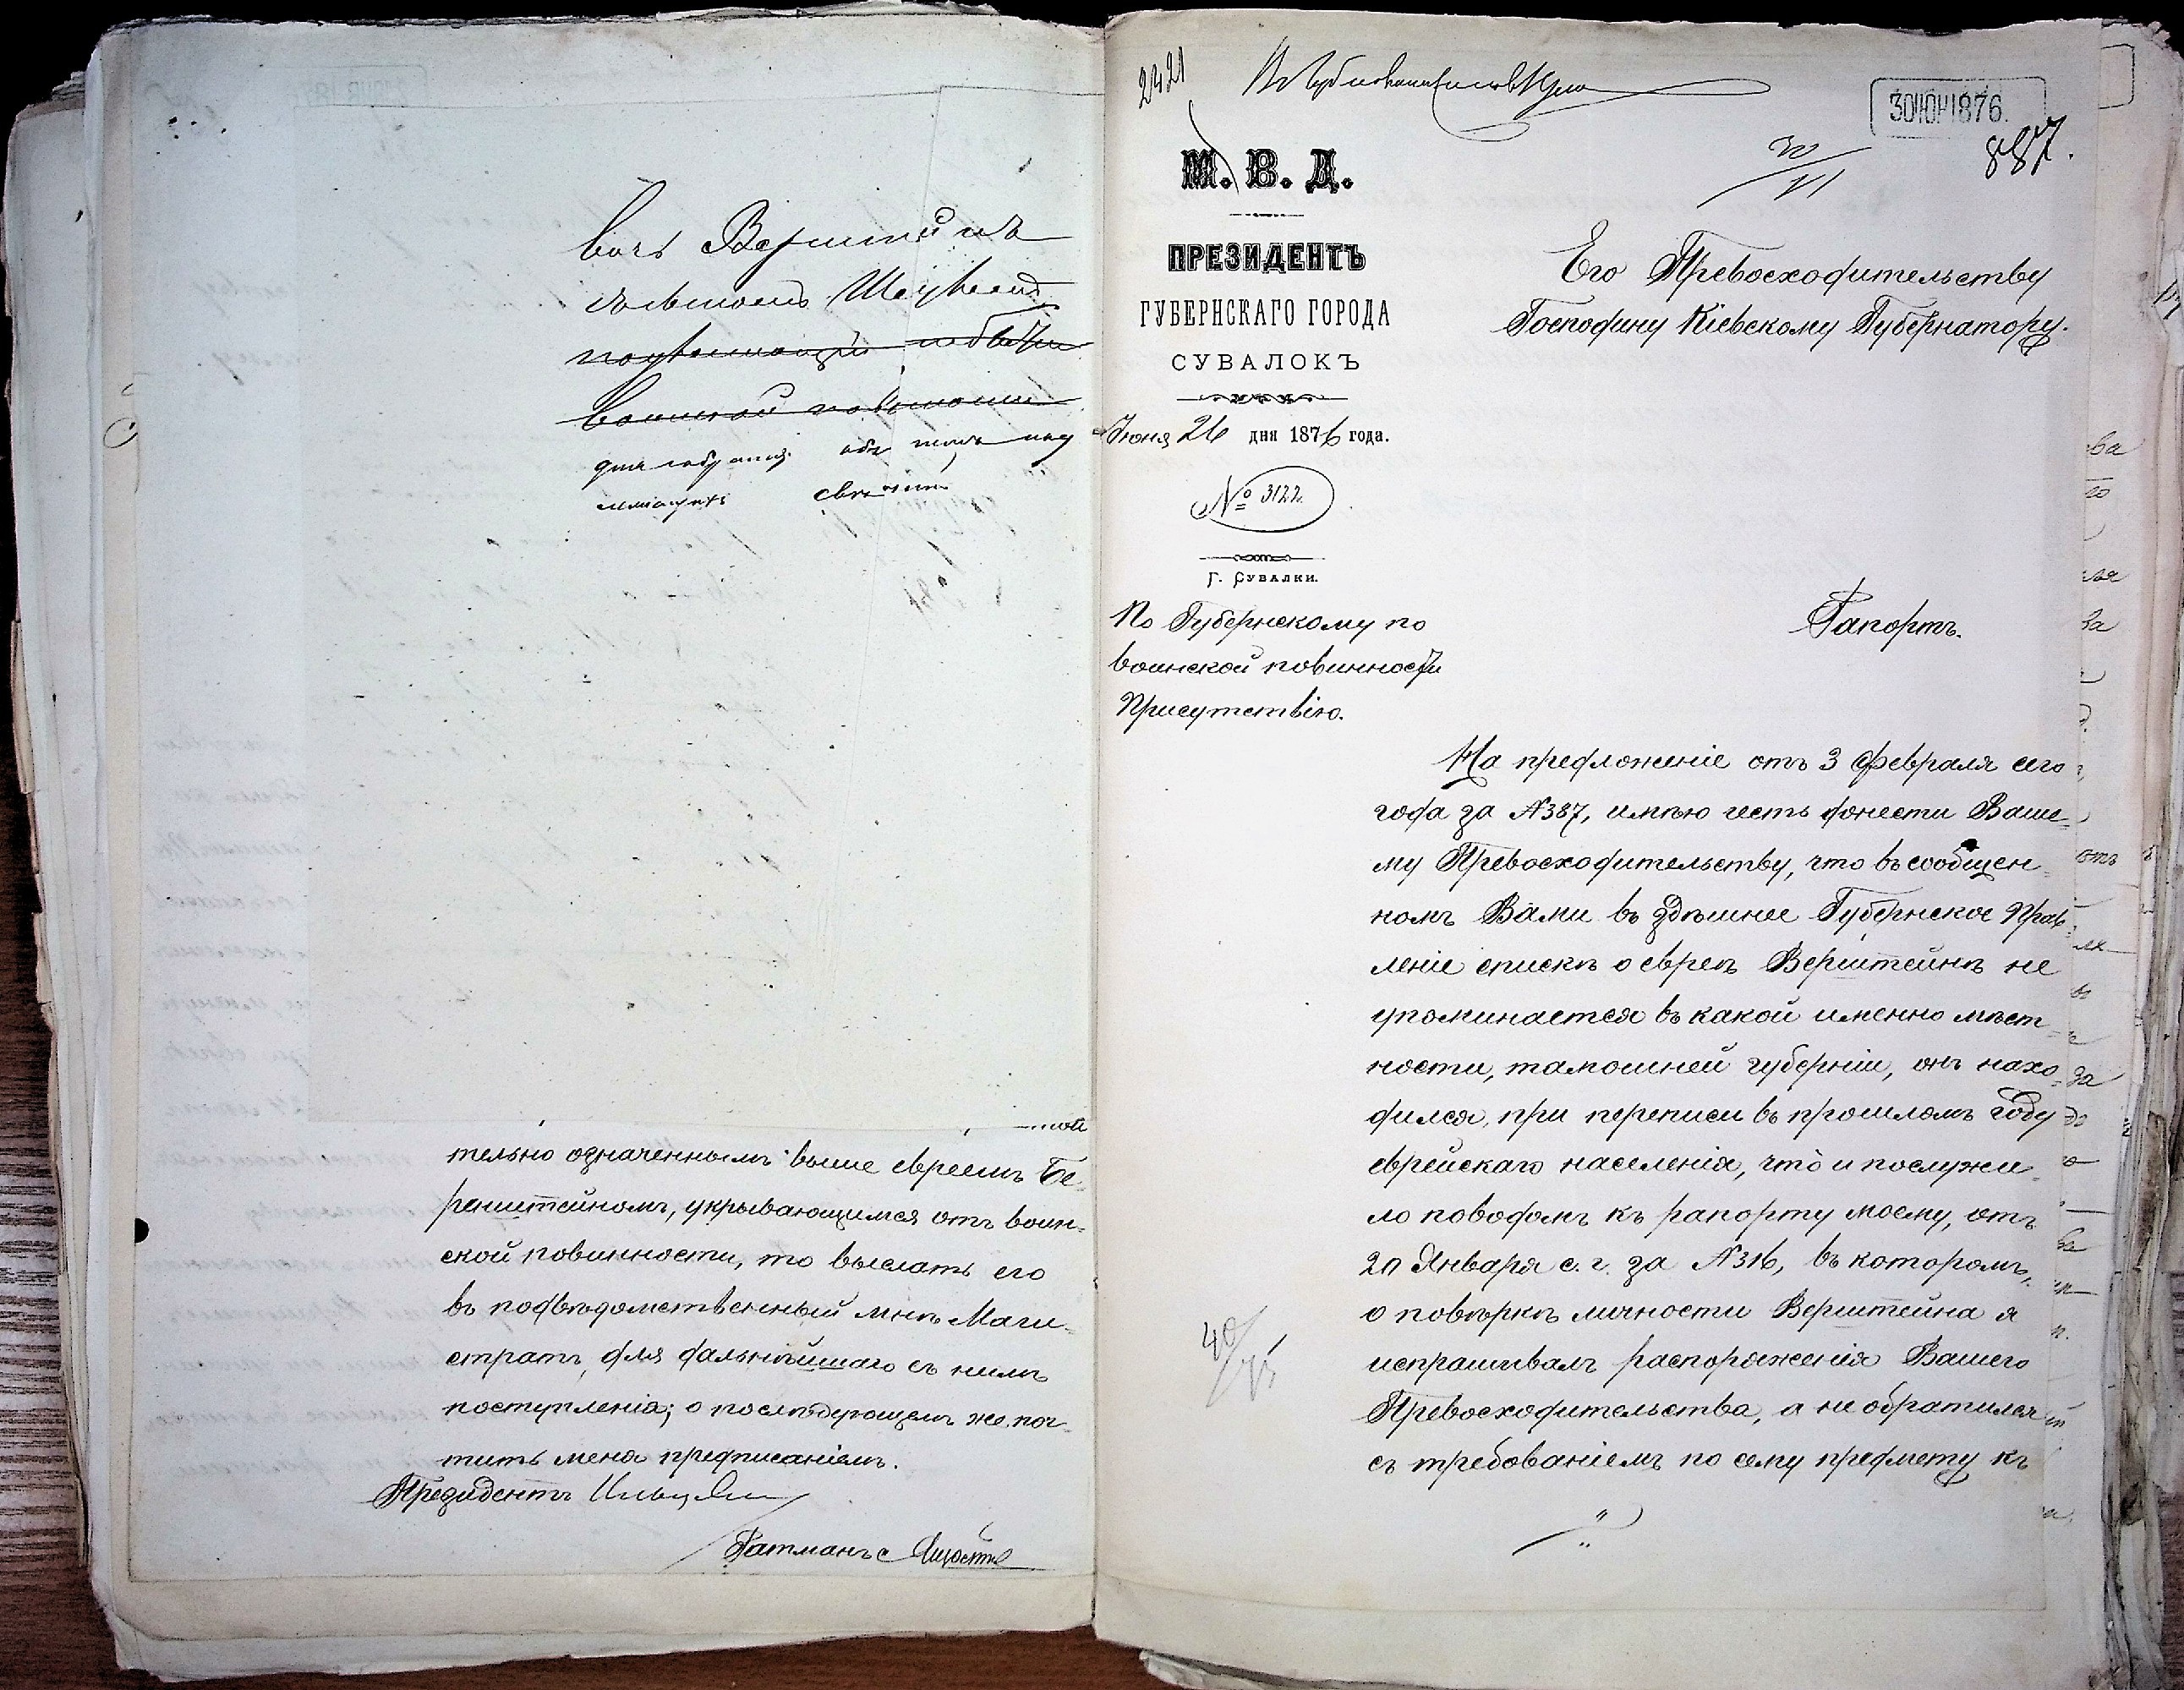 тельно означеннымъ выше евреемъ Бе-
ренштейномъ, укрывающимся отъ воин-
ской повинности, то выслать его
въ подвѣдомственный мнѣ Маги-
стратъ, для дальнѣйшаго съ нимъ
поступленія; о послѣдующемъ же поч-
тить меня предписаніемъ.
Президентъ
Ратманъ
2421
30 ІЮН 1876.
30/VI
887.
М. В. Д.
ПРЕЗИДЕНТЪ
ГУБЕРНСКАГО ГОРОДА
СУВАЛОКЪ
Іюня 26 дня 1876 года.
№ 3122.
Г. СУВАЛКИ.
По Губернскому по
воинской повинности
Присутствію.
Его Превосходительству
Господину Кіевскому Губернатору.
Рапортъ.
На предложеніе отъ 3 Февраля сего
года за №387, имѣю честь донести Ваше-
му Превосходительству, что въ сообщен-
номъ Вами въ здѣшнее Губернское Прав-
леніе спискѣ о евреѣ Верштейнѣ не
упоминается въ какой именно мѣст-
ности, тамошней губерніи, онъ нахо-
дился, при переписи въ прошломъ году
еврейскаго населенія, что и послужи-
ло поводомъ къ рапорту моему, отъ
20 Января с. г. за №316, въ которомъ,
о повѣркѣ личности Верштейна я
испрашивалъ распоряженія Вашего
Превосходительства, а не обратился
съ требованіемъ по сему предмету къ